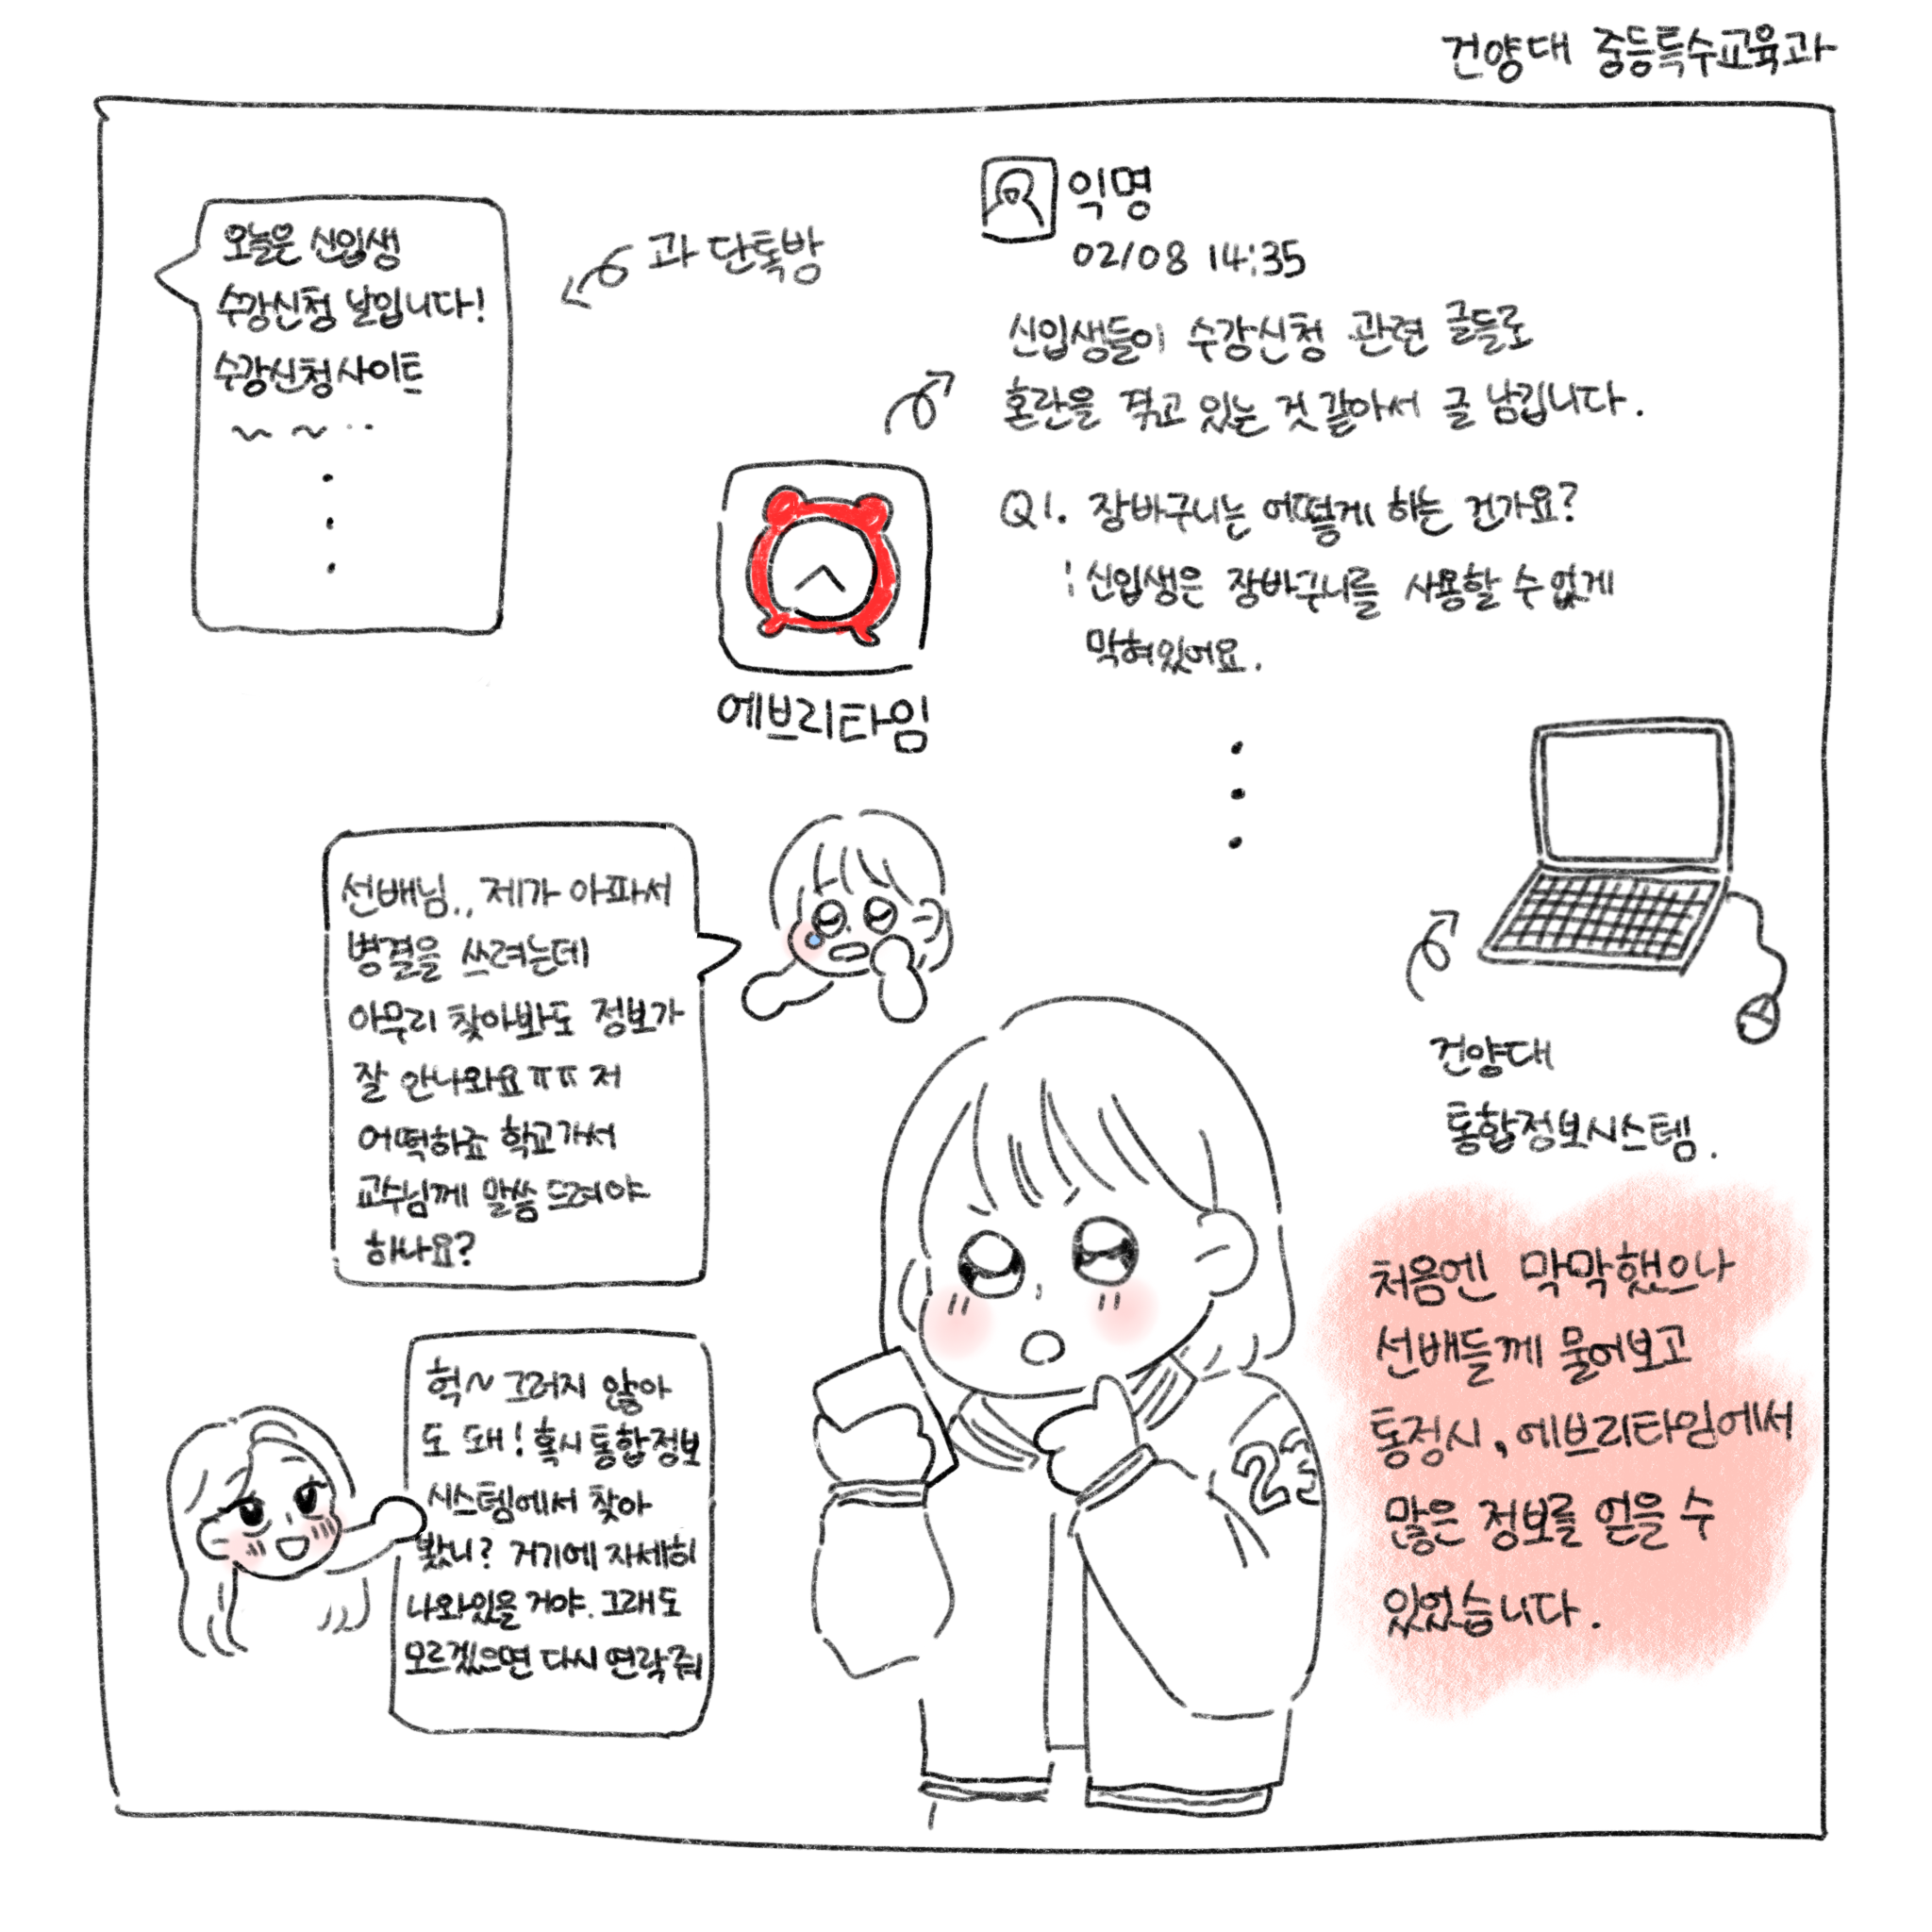 건양대 중등특수교육과
오늘은 신입생
수강신청 날입니다!
수강신청사이트
~ ~ ..
과 단톡방
익명
02/08 14:35
신입생들이 수강신청 관련 글들로
혼란을 겪고 있는 것 같아서 글 남깁니다.
Q1. 장바구니는 어떻게 하는 건가요?
: 신입생은 장바구니를 사용할 수 없게
막혀있어요.
에브리타임
건양대
통합정보시스템.
선배님.. 제가 아파서
병결을 쓰려는데
아무리 찾아봐도 정보가
잘 안나와요ㅠㅠ 저
어떡하죠 학교가서
교수님께 말씀 드려야
하나요?
헉~ 그러지 않아
도 돼! 혹시 통합정보
시스템에서 찾아
봤니? 거기에 자세히
나와있을 거야. 그래도
모르겠으면 다시 연락줘
23
처음엔 막막했으나
선배들께 물어보고
통정시, 에브리타임에서
많은 정보를 얻을 수
있었습니다.